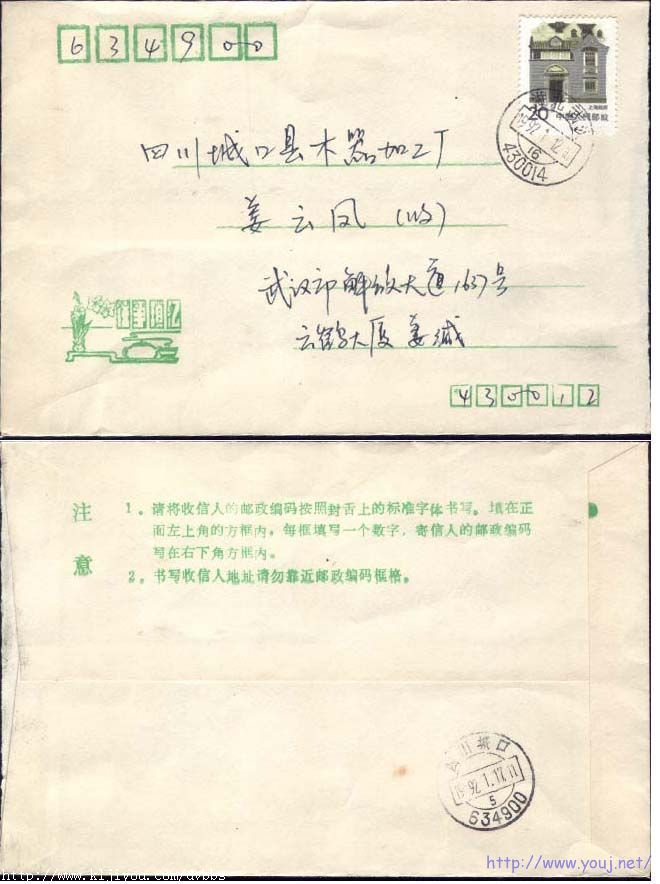 634900
上海民居
20 中国人民邮政
湖北武汉
1992.1.12
16
430014
四川城口县木器加工厂
姜云凤(收)
武汉市解放大道1637号
云鹤大厦 姜斌
430012
注意
1。请将收信人的邮政编码按照封舌上的标准字体书写。填在正
面左上角的方框内。每框填写一个数字,寄信人的邮政编码
写在右下角方框内。
2。书写收信人地址请勿靠近邮政编码框格。
四川城口
1992.1.17.11
5
634900
http://www.kijiyou.com/dvbbs
http://www.youj.net/